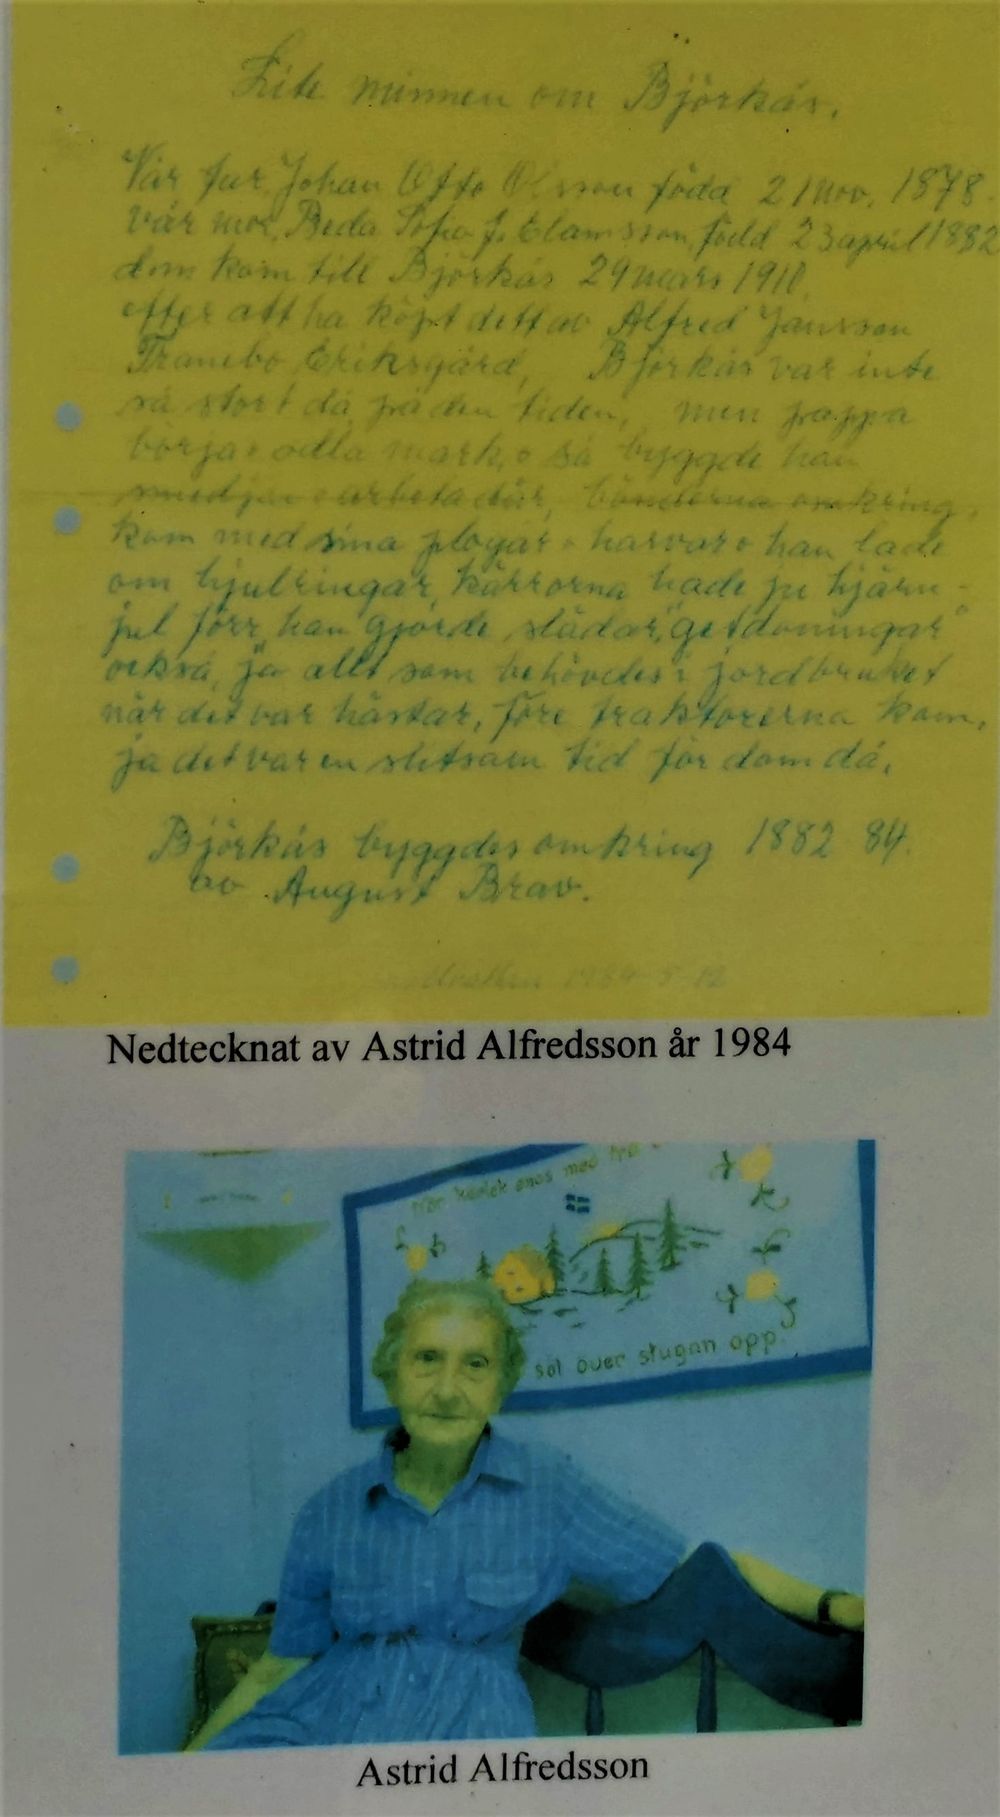 Lite minnen om Björkås.
Vår far, Johan Otto Olsson född 21 nov. 1878.
vår mor, Beda Sofia f. Elamsson, född 23 april 1882
dom kom till Björkås 29 mars 1910.
efter att ha köpt dett av Alfred Jansson
Tranebo Eriksgård, Björkås var inte
så stort då på den tiden, men pappa
börja odla mark, o så byggde han
smedja o arbeta där, bönderna omkring,
kom med sina plogar o harvar o han lade
om hjulringar, kärrorna hade ju hjärn-
jul förr, han gjorde slädar,
också, ja allt som behövdes i jordbruket
när det var hästar, före traktorerna kom,
ja det var en slitsam tid för dom då.
Björkås byggdes omkring 1882 84.
av August Brav.
1984-5-12
Nedtecknat av Astrid Alfredsson år 1984
När kärlek enas med
sol över stugan opp
Astrid Alfredsson